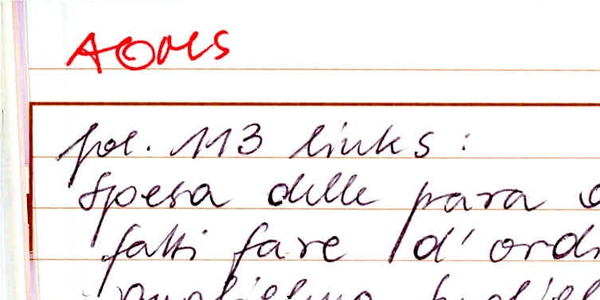 AOMS
fol. 113 links:
Spesa delle para
fatti fare d'ordi